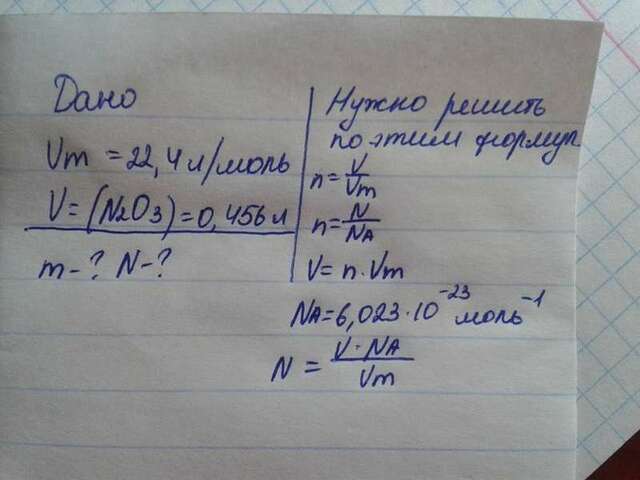 Дано
Vm = 22,4 л/моль
V = (N2O3) = 0,456 л
m - ? N - ?
Нужно решить
по этим формул
n = V/Vm
n = N/NA
V = n · Vm
NA = 6,023 · 10^-23 моль^-1
N = V · NA / Vm